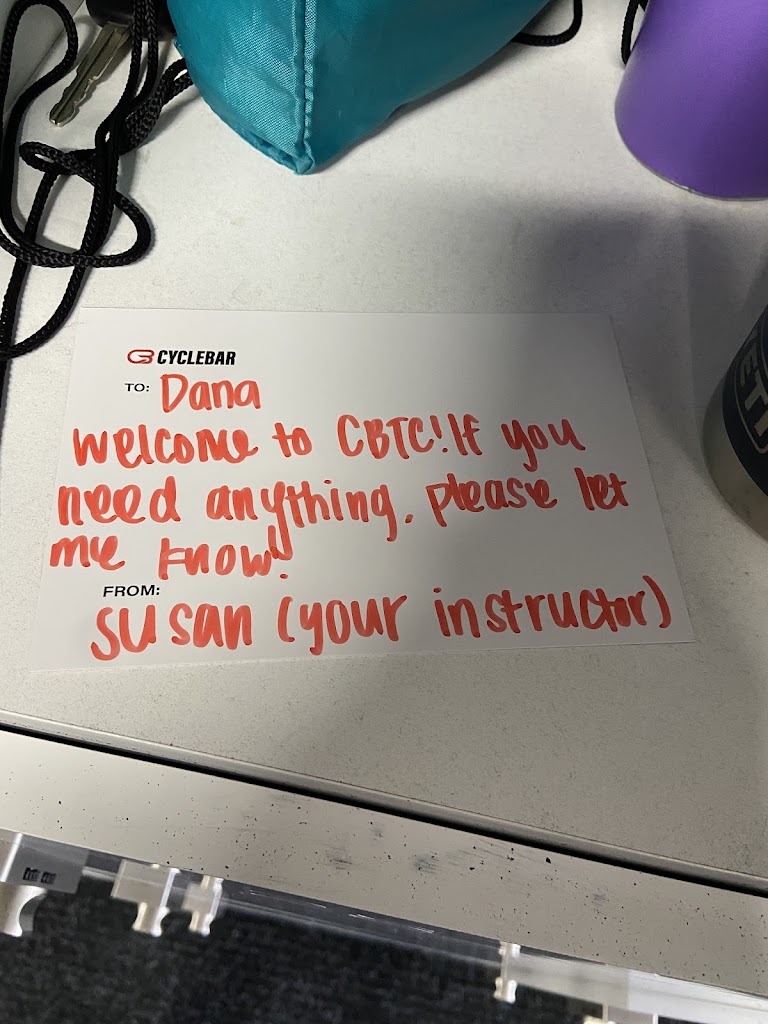 CYCLEBAR
TO: Dana
Welcome to CBTC! If you
need anything, please let
me know!
FROM:
Susan (your instructor)
YETI